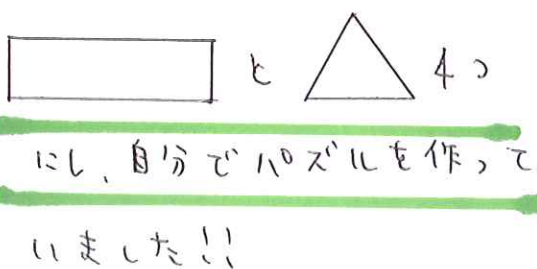 と 4つ
にし、自分でパズルを作って
いました!!